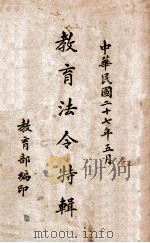 中華民國二十七年五月
教育法令特輯
教育部編印